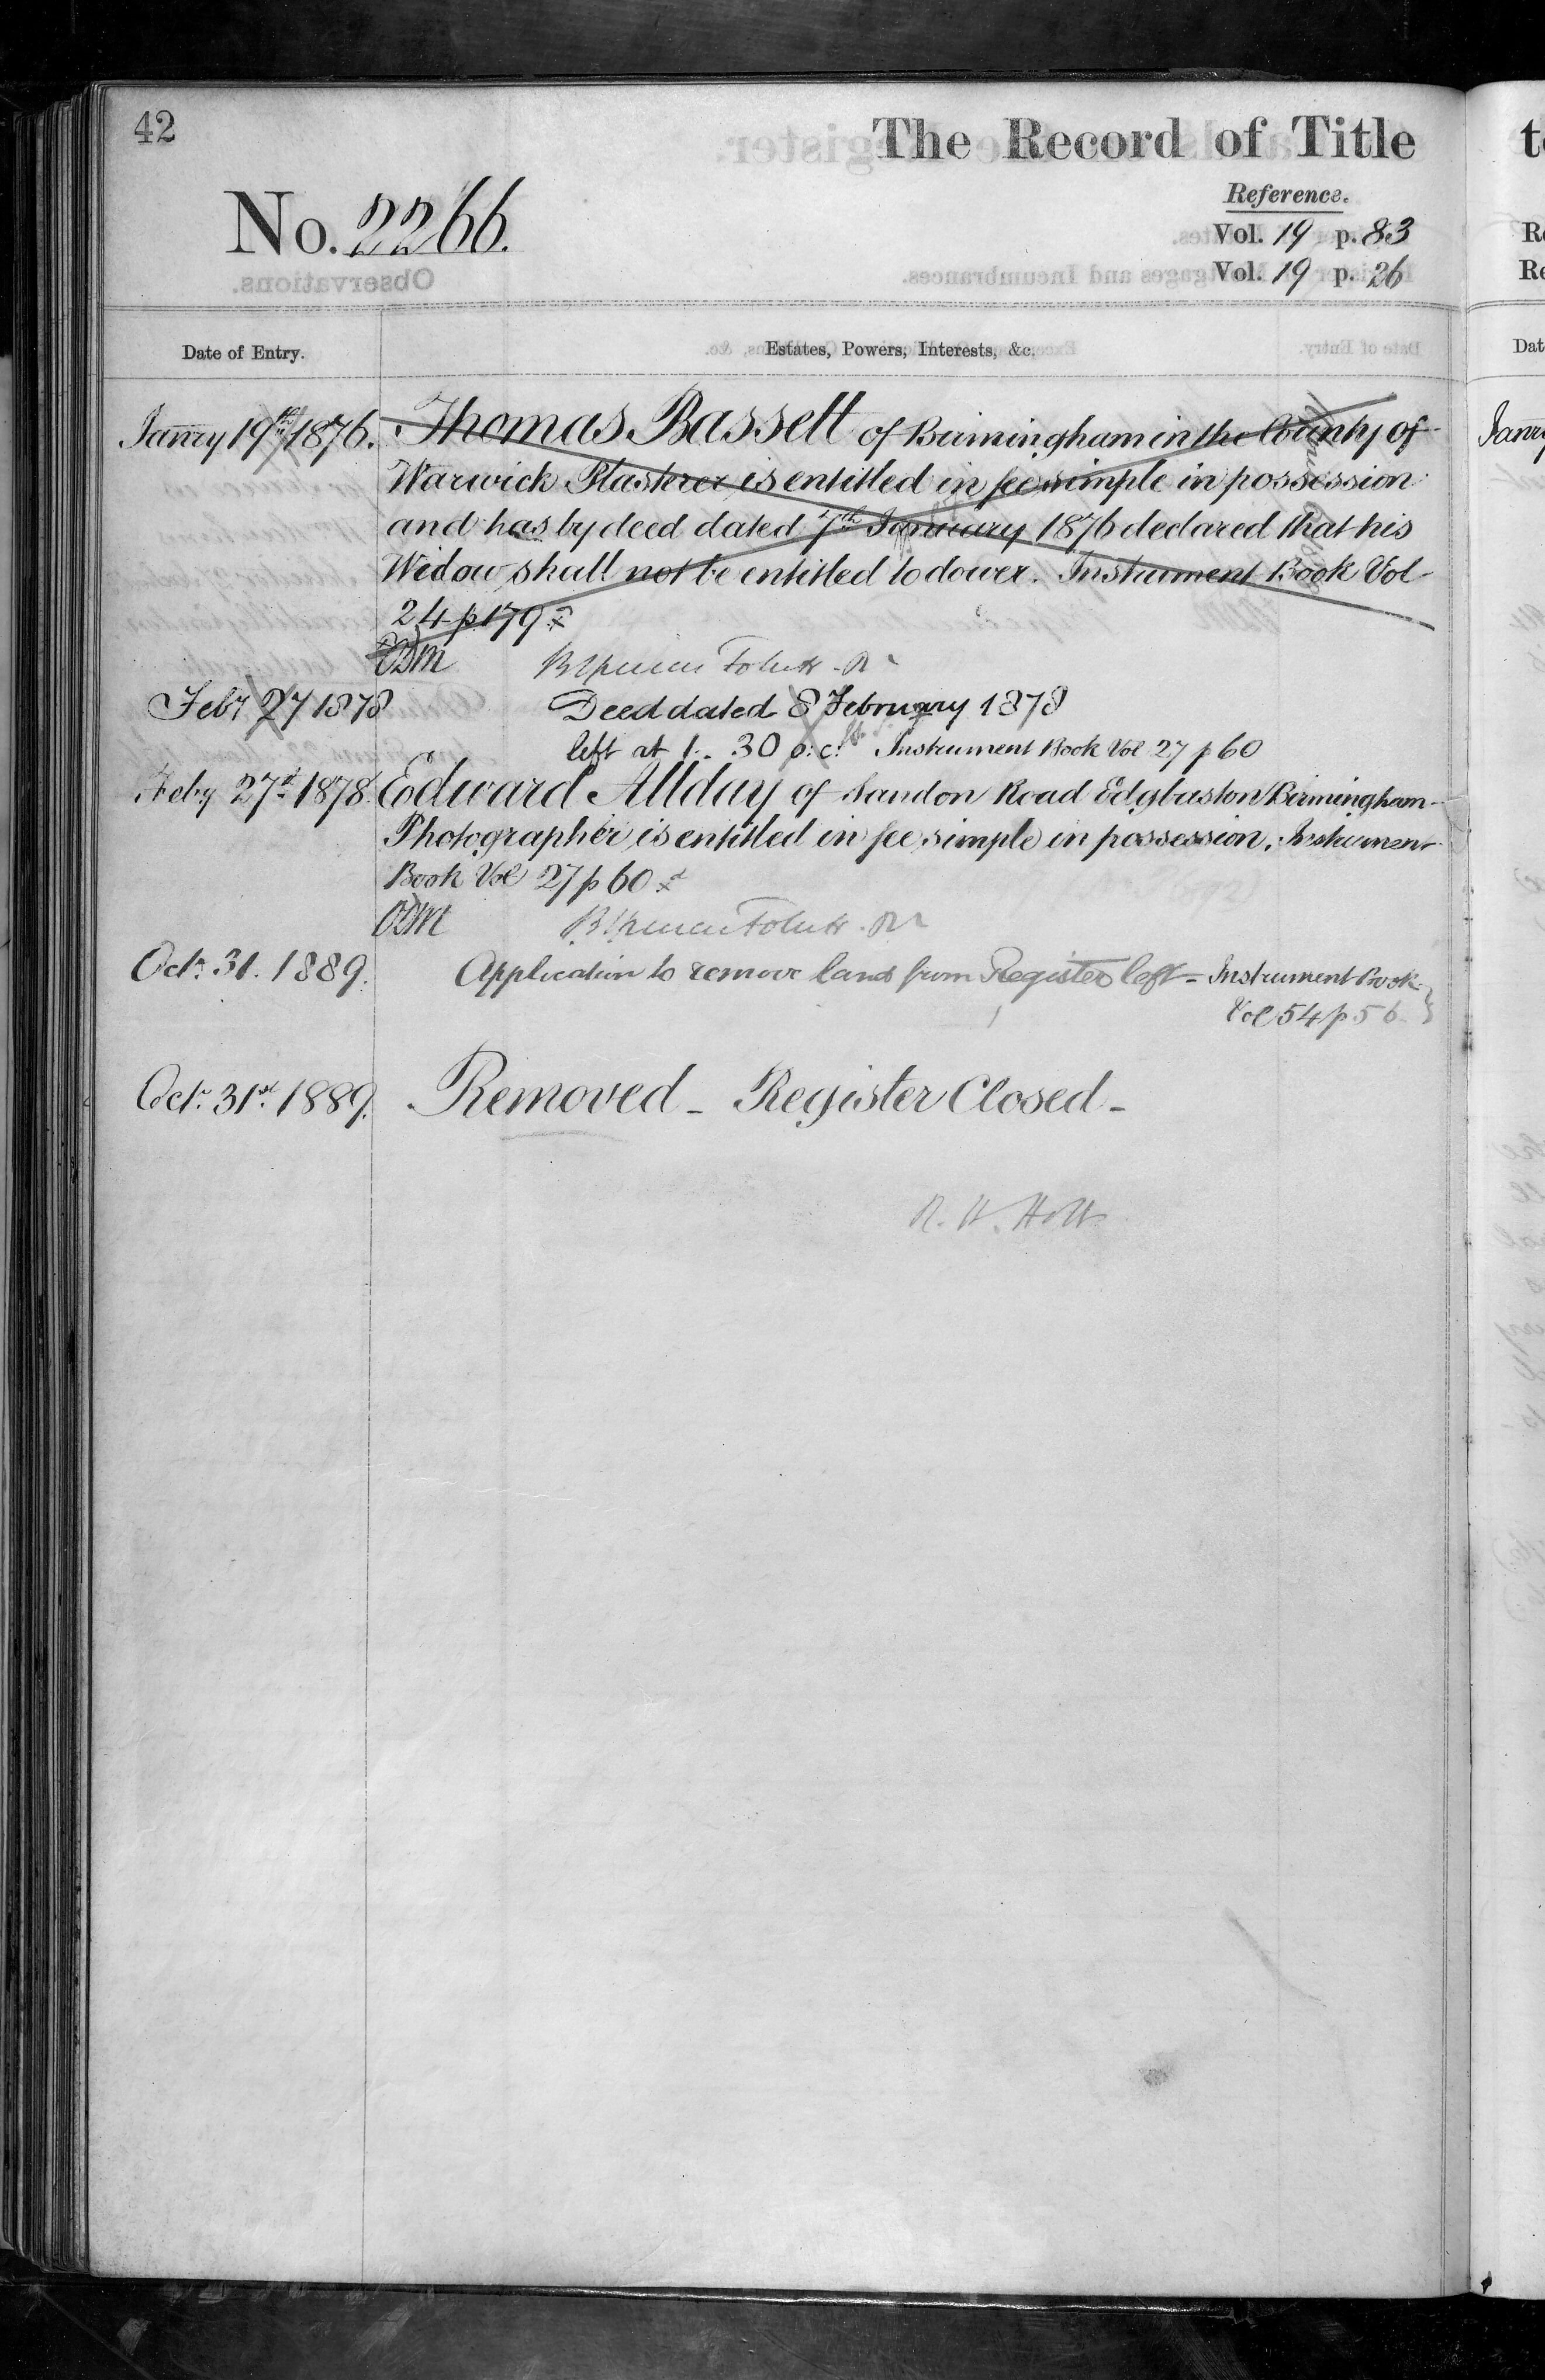 42
The Record of Title
No. 2266.
Reference.
Vol. 19 p. 83
Vol. 19 p. 26
Date of Entry.
Estates, Powers, Interests, &c.
Janry 19th 1876. Thomas Bassett of Birmingham in the County of
Warwick Plasterer is entitled in fee simple in possession
and has by deed dated 7th January 1876 declared that his
Widow shall not be entitled to dower. Instrument Book Vol
24 p 179
Feby 27 1878 Deed dated 8 February 1878
left at 1.. 30 o.c. Instrument Book Vol 27 p 60
Feby 27th 1878. Edward Allday of Sandon Road Edgbaston Birmingham
Photographer is entitled in fee simple in possession. Instrument
Book Vol 27 p 60
Octr. 31. 1889. Application to remove land from Register left - Instrument Book
Vol 54 p 56
Octr. 31st. 1889. Removed - Register Closed -
R. H. Holt